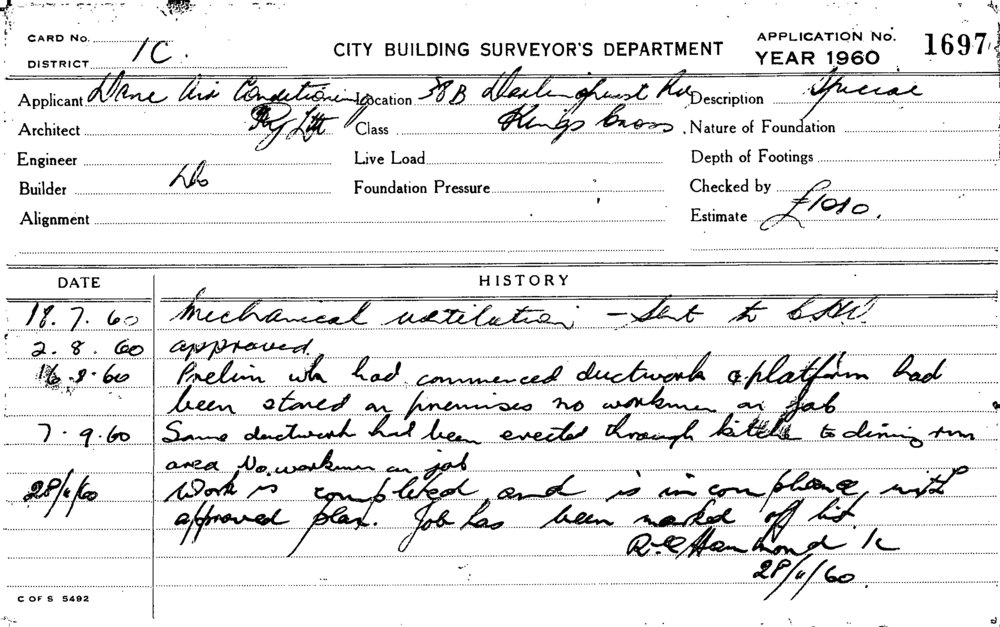 CARD No.
DISTRICT 1C.
CITY BUILDING SURVEYOR'S DEPARTMENT
APPLICATION No. 1697
YEAR 1960
Applicant Dane Air Conditioning Location 38B Darlinghurst Rd Description Special
Architect Pty Ltd Class Kings Cross Nature of Foundation
Engineer Live Load Depth of Footings
Builder Do Foundation Pressure Checked by
Alignment Estimate £1010.
DATE HISTORY
18.7.60 Mechanical ventilation – Sent to
2.8.60 approved.
16.8.60 Prelim wk had commenced ductwork & platform had
been stored on premises no workmen on job
7.9.60 Some ductwork had been erected through kitchen to dining rm
area No workmen on job
28/11/60 Work is completed and is in compliance with
approved plan. Job has been marked off list
Hammond 1c
28/11/60.
C OF S 5492